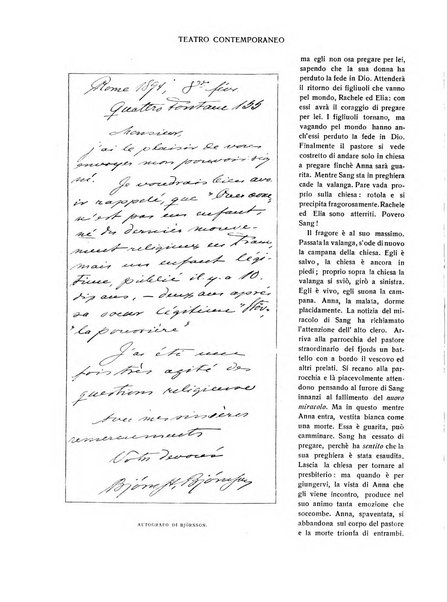 TEATRO CONTEMPORANEO
Rome 1894, 8 fév.
Quattro Fontane 155
Monsieur,
j'ai le plaisir de vous
envoyer mon pouvoir si-
gné.
Je voudrais bien avo-
ir rappelé, que
n'est pas un enfant,
né des derniers mouve-
ment religieux en
mais un enfant légi-
time, publié il y a 10-
dix ans, – deux ans après
sa soeur légitime
J'ai été une
fois très agité des
questions religieuse
Avec mes sincères
remerciements
Votre devoué
Björnst. Björnson
AUTOGRAFO DI BJÖRNSON.
ma egli non osa pregare per lei,
sapendo che la sua donna ha
perduto la fede in Dio. Attenderà
il ritorno dei figliuoli che vanno
pel mondo, Rachele ed Elia: con
essi avrà il coraggio di pregare
per lei. I figliuoli tornano, ma
vagando pel mondo hanno an-
ch'essi perduto la fede in Dio.
Finalmente il pastore si vede
costretto di andar solo in chiesa
a pregare finchè Anna sarà gua-
rita. Mentre Sang sta in chiesa
cade la valanga. Pare vada pro-
prio sulla chiesa: rotola e si
precipita fragorosamente. Rachele
ed Elia sono atterriti. Povero
Sang!
Il fragore è al suo massimo.
Passata la valanga, s'ode di nuovo
la campana della chiesa. Egli è
salvo, la chiesa è ancora in
piedi; proprio sopra la chiesa la
valanga si sviò, girò a sinistra.
Egli è vivo, egli suona la cam-
pana. Anna, la malata, dorme
placidamente. La notizia del mi-
racolo di Sang ha richiamato
l'attenzione dell'alto clero. Arri-
va alla parrocchia del pastore
straordinario dei fjords un battel-
lo con a bordo il vescovo ed
altri prelati. Si recano alla par-
rocchia e là piacevolmente atten-
dono pensando al furore di Sang
innanzi al fallimento del nuovo
miracolo. Ma in questo mentre
Anna entra, vestita bianca come
una morte. Essa è guarita, può
camminare. Sang ha cessato di
pregare, perchè ha sentito che la
sua preghiera è stata esaudita.
Lascia la chiesa per tornare al
presbiterio: ma quando è per
giungervi, la vista di Anna che
gli viene incontro, produce nel
suo animo tanta emozione che
soccombe. Anna, spaventata, si
abbandona sul corpo del pastore
e la morte trionfa di entrambi.